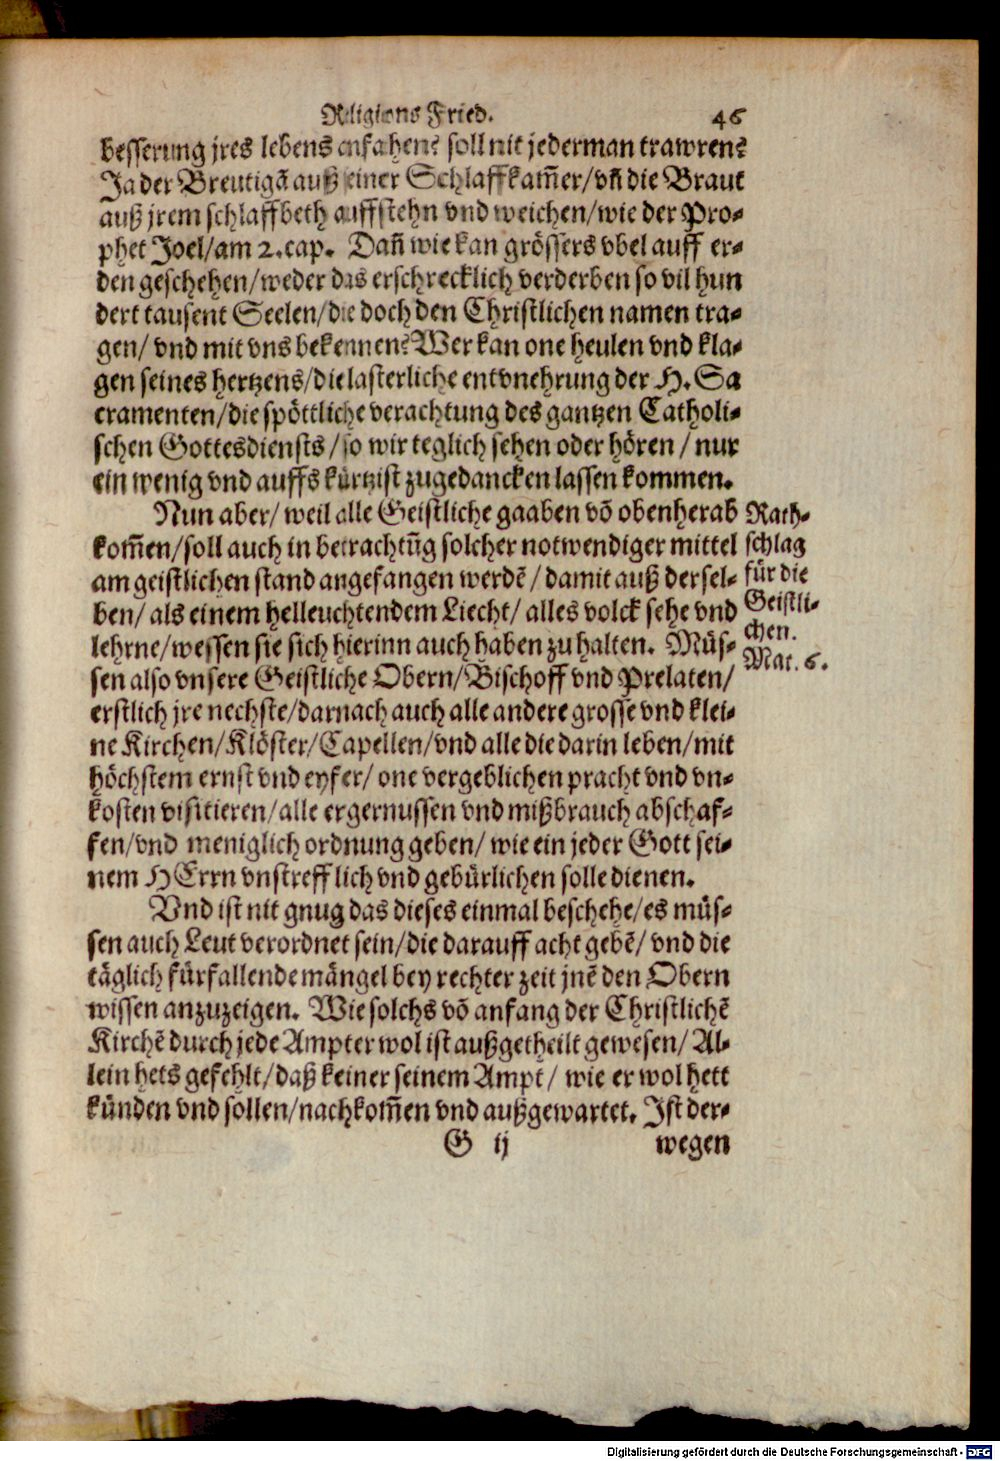 Religions Fried. 46
besserung jres lebens anfahen? soll nit jederman trawren?
Ja der Breutigā auß seiner Schlaffkam̃er/ vñ die Braut
auß jrem schlaffbeth auffstehn vnd weichen/ wie der Pro-
phet Joel/ am 2. cap. Dañ wie kan grössers vbel auff er-
den geschehen/ weder das erschrecklich verderben so vil hun
dert tausent Seelen/ die doch den Christlichen namen tra-
gen/ vnd mit vns bekennen? Wer kan one heulen vnd kla-
gen seines hertzens/ die lasterliche entvnehrung der H. Sa
cramenten/ die spöttliche verachtung des gantzen Catholi-
schen Gottesdiensts/ so wir teglich sehen oder hören/ nur
ein wenig vnd auffs kürtzist zugedancken lassen kommen.
Nun aber/ weil alle Geistliche gaaben vō obenherab
kom̃en/ soll auch in betrachtūg solcher notwendiger mittel
am geistlichen stand angefangen werdē/ damit auß dersel-
ben/ als einem helleuchtendem Liecht/ alles volck sehe vnd
lehrne/ wessen sie sich hierinn auch haben zu halten. Müs-
sen also vnsere Geistliche Obern/ Bischoff vnd Prelaten/
erstlich jre nechste/ darnach auch alle andere grosse vnd klei-
ne Kirchen/ Klöster/ Capellen/ vnd alle die darin leben/ mit
höchstem ernst vnd eyfer/ one vergeblichen pracht vnd vn-
kosten visitieren/ alle ergernussen vnd mißbrauch abschaf-
fen/ vnd meniglich ordnung geben/ wie ein jeder Gott sei-
nem HErrn vnstrefflich vnd gebürlichen solle dienen.
Vnd ist nit gnug das dieses einmal beschehe/ es müs-
sen auch Leut verordnet sein/ die darauff acht gebē/ vnd die
täglich fürfallende mängel bey rechter zeit jnē den Obern
wissen anzuzeigen. Wie solchs vō anfang der Christlichē
Kirchē durch jede Ampter wol ist außgetheilt gewesen/ Al-
lein hets gefehlt/ daß keiner seinem Ampt/ wie er wol hett
künden vnd sollen/ nachkom̃en vnd außgewartet. Ist der-
G ij wegen
Rath-
schlag
für die
Geistli-
chen.
Mat. 6.
Digitalisierung gefördert durch die Deutsche Forschungsgemeinschaft - DFG